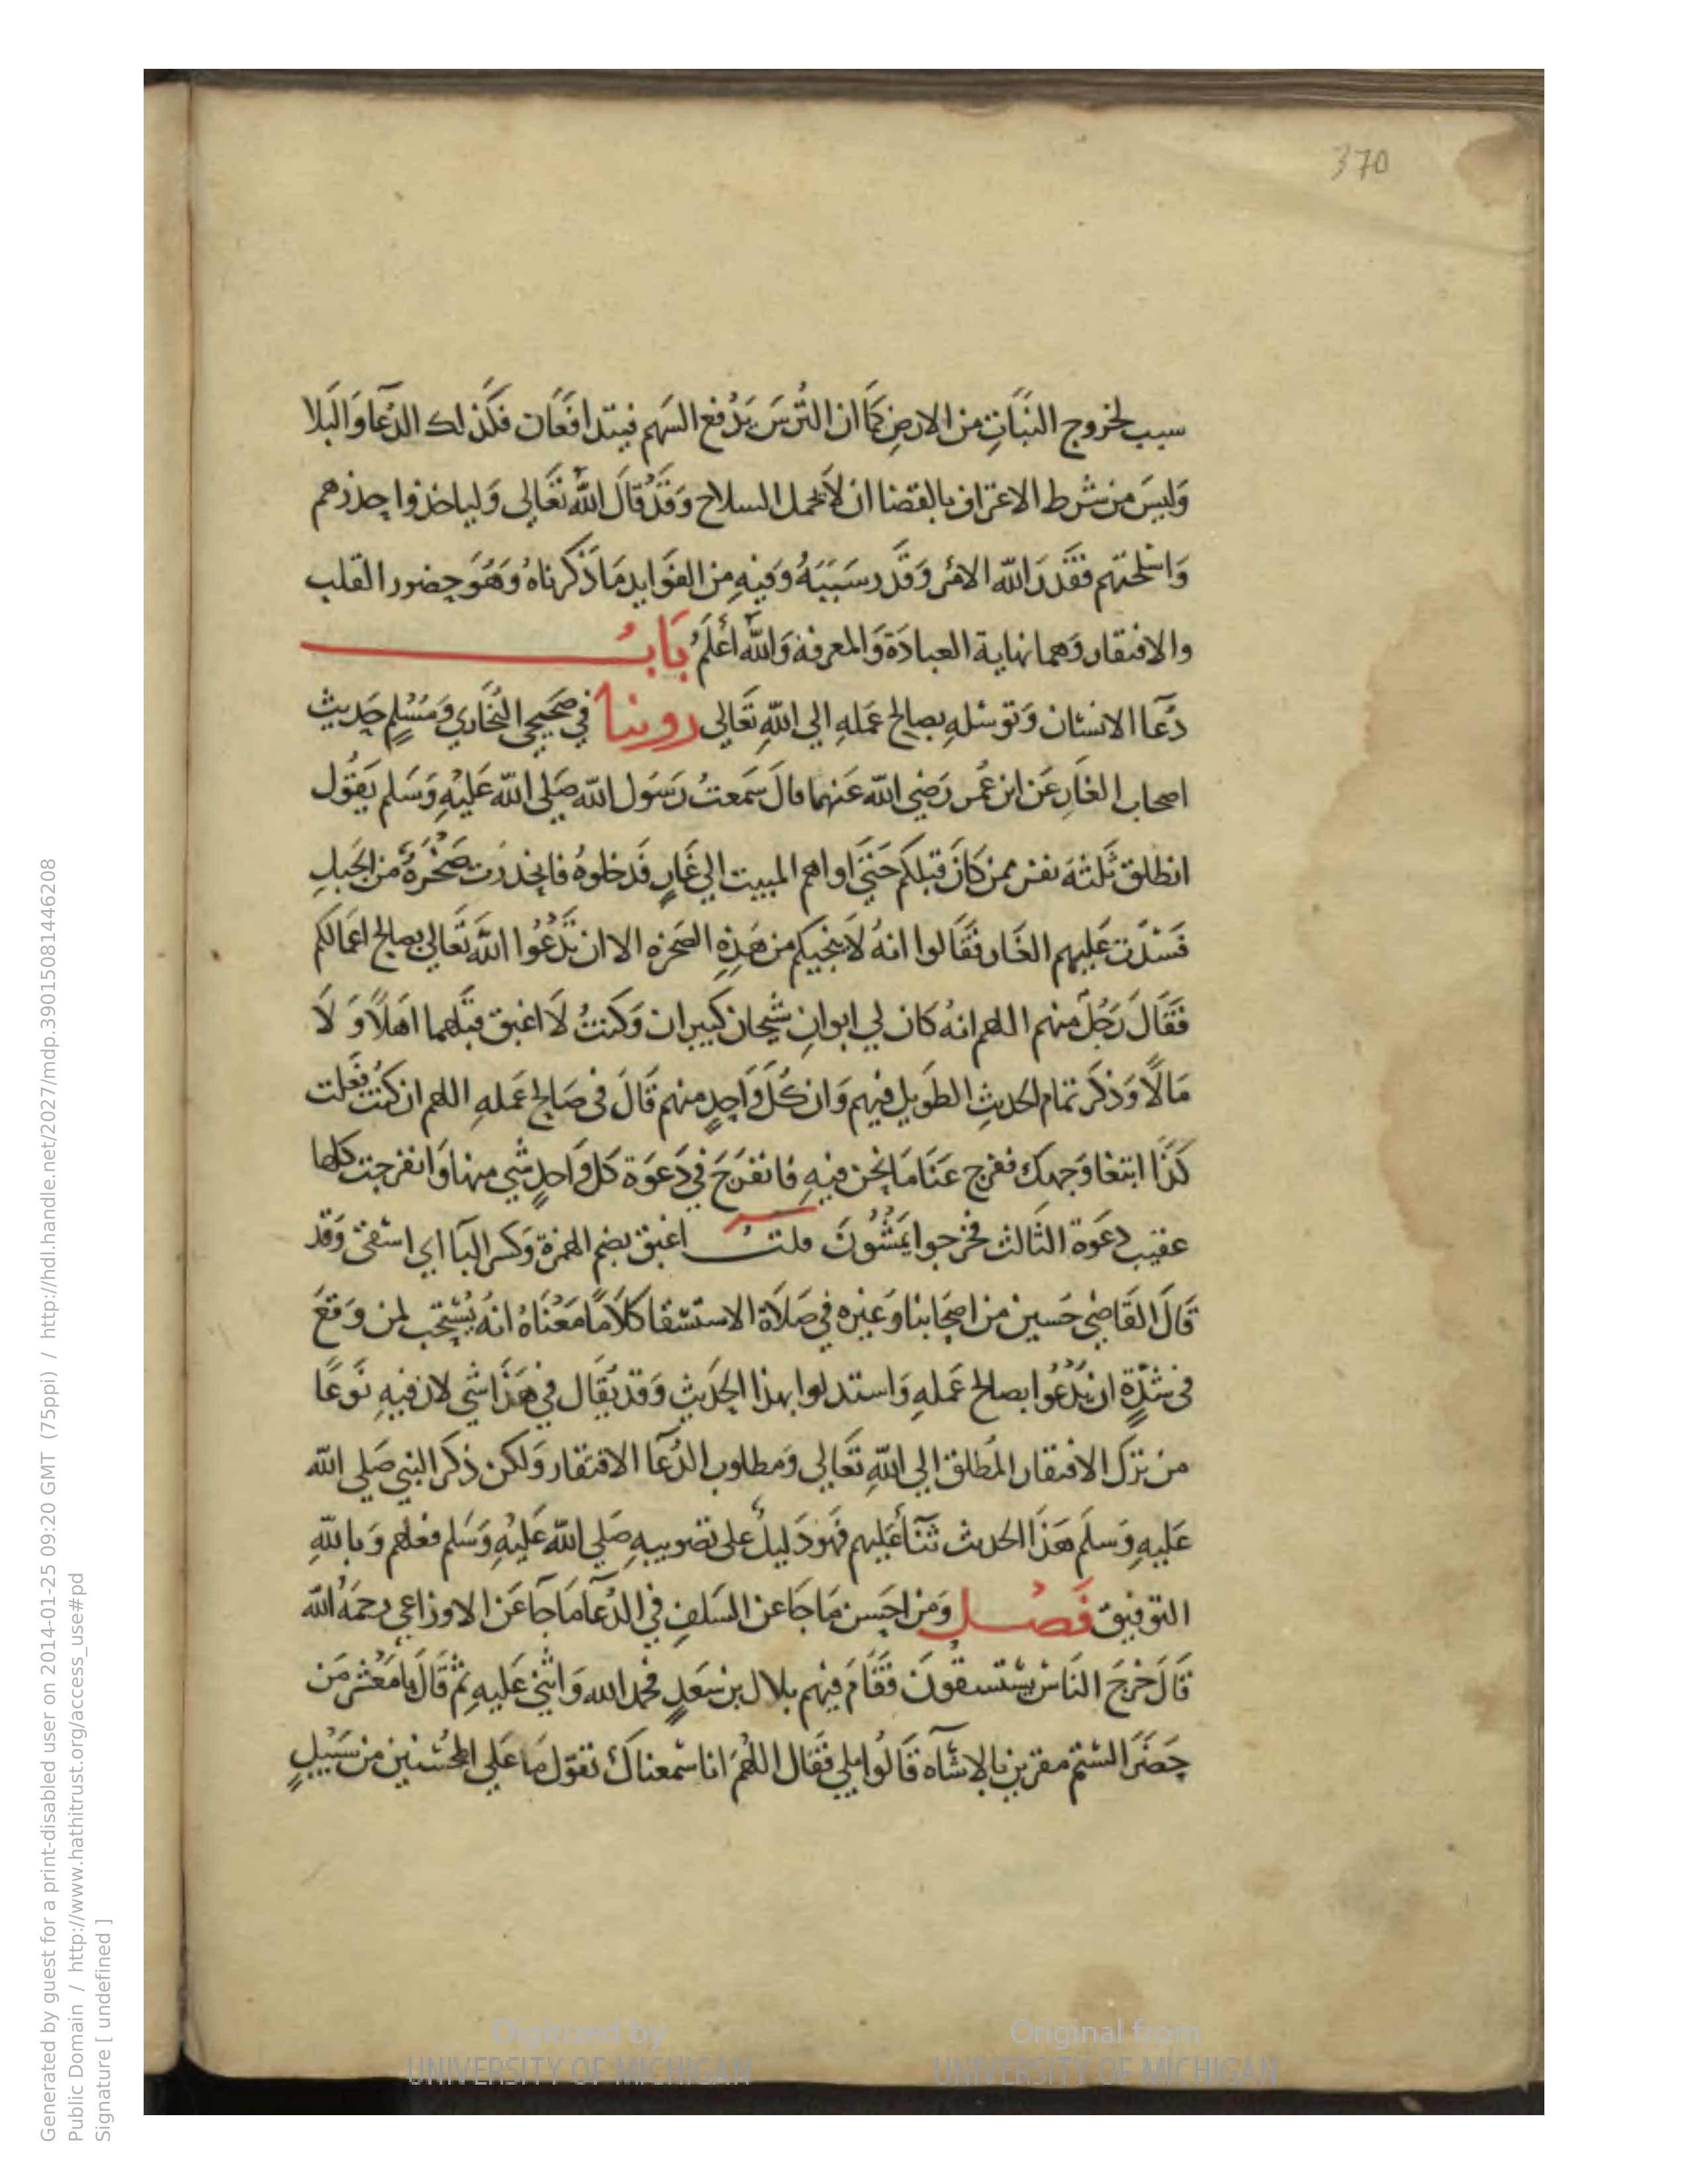 370
سبب لخروج النَّبَاتِ من الارضِ كَمَا ان التُّرسَ يَدْفع السَهم فيتدافَعَان فكَذلك الدُعَآ وَالبَلا
وَليسَ من شرط الاعتراف بالقضا ان لَا يحمل السلاح وَقَدْ قالَ اللّٰه تعَالى وَلياخذوا حذرهم
وَاسْلحتهم فقَدرَ اللّٰه الامْر وَقَدرسَبَبَهُ وَفيهِ من الفوَايد مَا ذَكَرناهُ وَهُوَ حضور القلب
والافتقار وَهما نهاية العبادَة وَالمعرفة وَاللّٰه أعْلَمُ بَابُ
دُعَآ الانسَان وَتوسّلهِ بصالح عَملهِ الي اللّٰهِ تَعَالى روينا في صَحيحي البُخَاري وَمُسْلمٍ حَديث
اصحاب الغَارِ عَن ابن عُمر رَضي اللّٰه عَنهما قالَ سَمعتُ رَسُول اللّٰه صَلي اللّٰه عَليْهِ وَسَلم يَقُول
انطلق ثَلثة نفر ممن كَانَ قبلكم حَتيَّ اواهم المبيت الي غَارٍ فَدخلوهُ فانحَدرَت صَخْرَةٌ من الجَبلِ
فَسَدَّت عَليهم الغَار فقَالوا انهُ لَا ينجيكم من هَذِهِ الصَخرة الا ان تَدْعُوا اللّٰهَ تَعَالي بصالح اعمَالكم
فَقَالَ رَجُلٌ منهم اللهم انهُ كان لي ابوانِ شيخان كبيران وَكنتُ لَا اغبق قبلَهما اهلًا وَ لَا
مَالًا وَذكَر تمام الحَديثِ الطَويل فيهم وَان كُلَ وَاحِدٍ منهم قَالَ في صَالح عَملهِ اللهم ان كُنتُ فعَلت
كَذَا ابتغا وَجهك ففرج عَنَا مَا نحن فيهِ فانفرَجَ في دَعوَة كل وَاحدٍ شي منها وَانفرجت كلها
عقيب دعوَة الثَالث فخرجوا يمَشُونَ قلتُ اغبق بضم الهمزة وَكسر البآ اي اسقي وَقد
قَالَ القَاضي حَسين من اصحَابنا وَغيره في صَلَاة الاستسقا كلَامًا مَعْنَاهُ انهُ يُسْتحب لمن وَقعَ
في شدّةٍ ان يَدْعُوا بصالح عَملهِ وَاستدلوا بهذا الحَديثِ وَقد يُقَال في هَذَا شي لان فيهِ نَوعًا
من ترك الافتقار المُطلق الي اللّٰهِ تَعَالي وَمطلوب الدُعَآ الافتقار وَلكن ذكَر النبي صَلي اللّٰه
عَليهِ وَسَلَم هَذَا الحديث ثَنَآءً عَليهم فَهُوَ دَليلٌ على تصويبهِ صَلي اللّٰه عَليْهِ وَسَلم فعلهم وَباللّٰهِ
التوفيق فَصْل وَمن احسن مَا جَا عن السَلفِ في الدُعَآ مَا جَآ عَن الاوزاعي رحمَهُ اللّٰه
قَالَ خرَجَ النَاسُ يستسقونَ فقَامَ فيهم بلال بن سَعدٍ فحمد الله وَاثني عَليهِ ثم قَالَ يَا مَعْشر مَن
حَضَرَ الستم مقرين بالاسَآءه قَالُوا بلي فقَال اللهُمَ انا سمعناك تقول مَا عَلي المُحْسنين من سَبيلٍ
Generated by guest for a print-disabled user on 2014-01-25 09:20 GMT (75ppi) / http://hdl.handle.net/2027/mdp.39015081446208
Public Domain / http://www.hathitrust.org/access_use#pd
Signature [ undefined ]
Digitized by
UNIVERSITY OF MICHIGAN
Original from
UNIVERSITY OF MICHIGAN